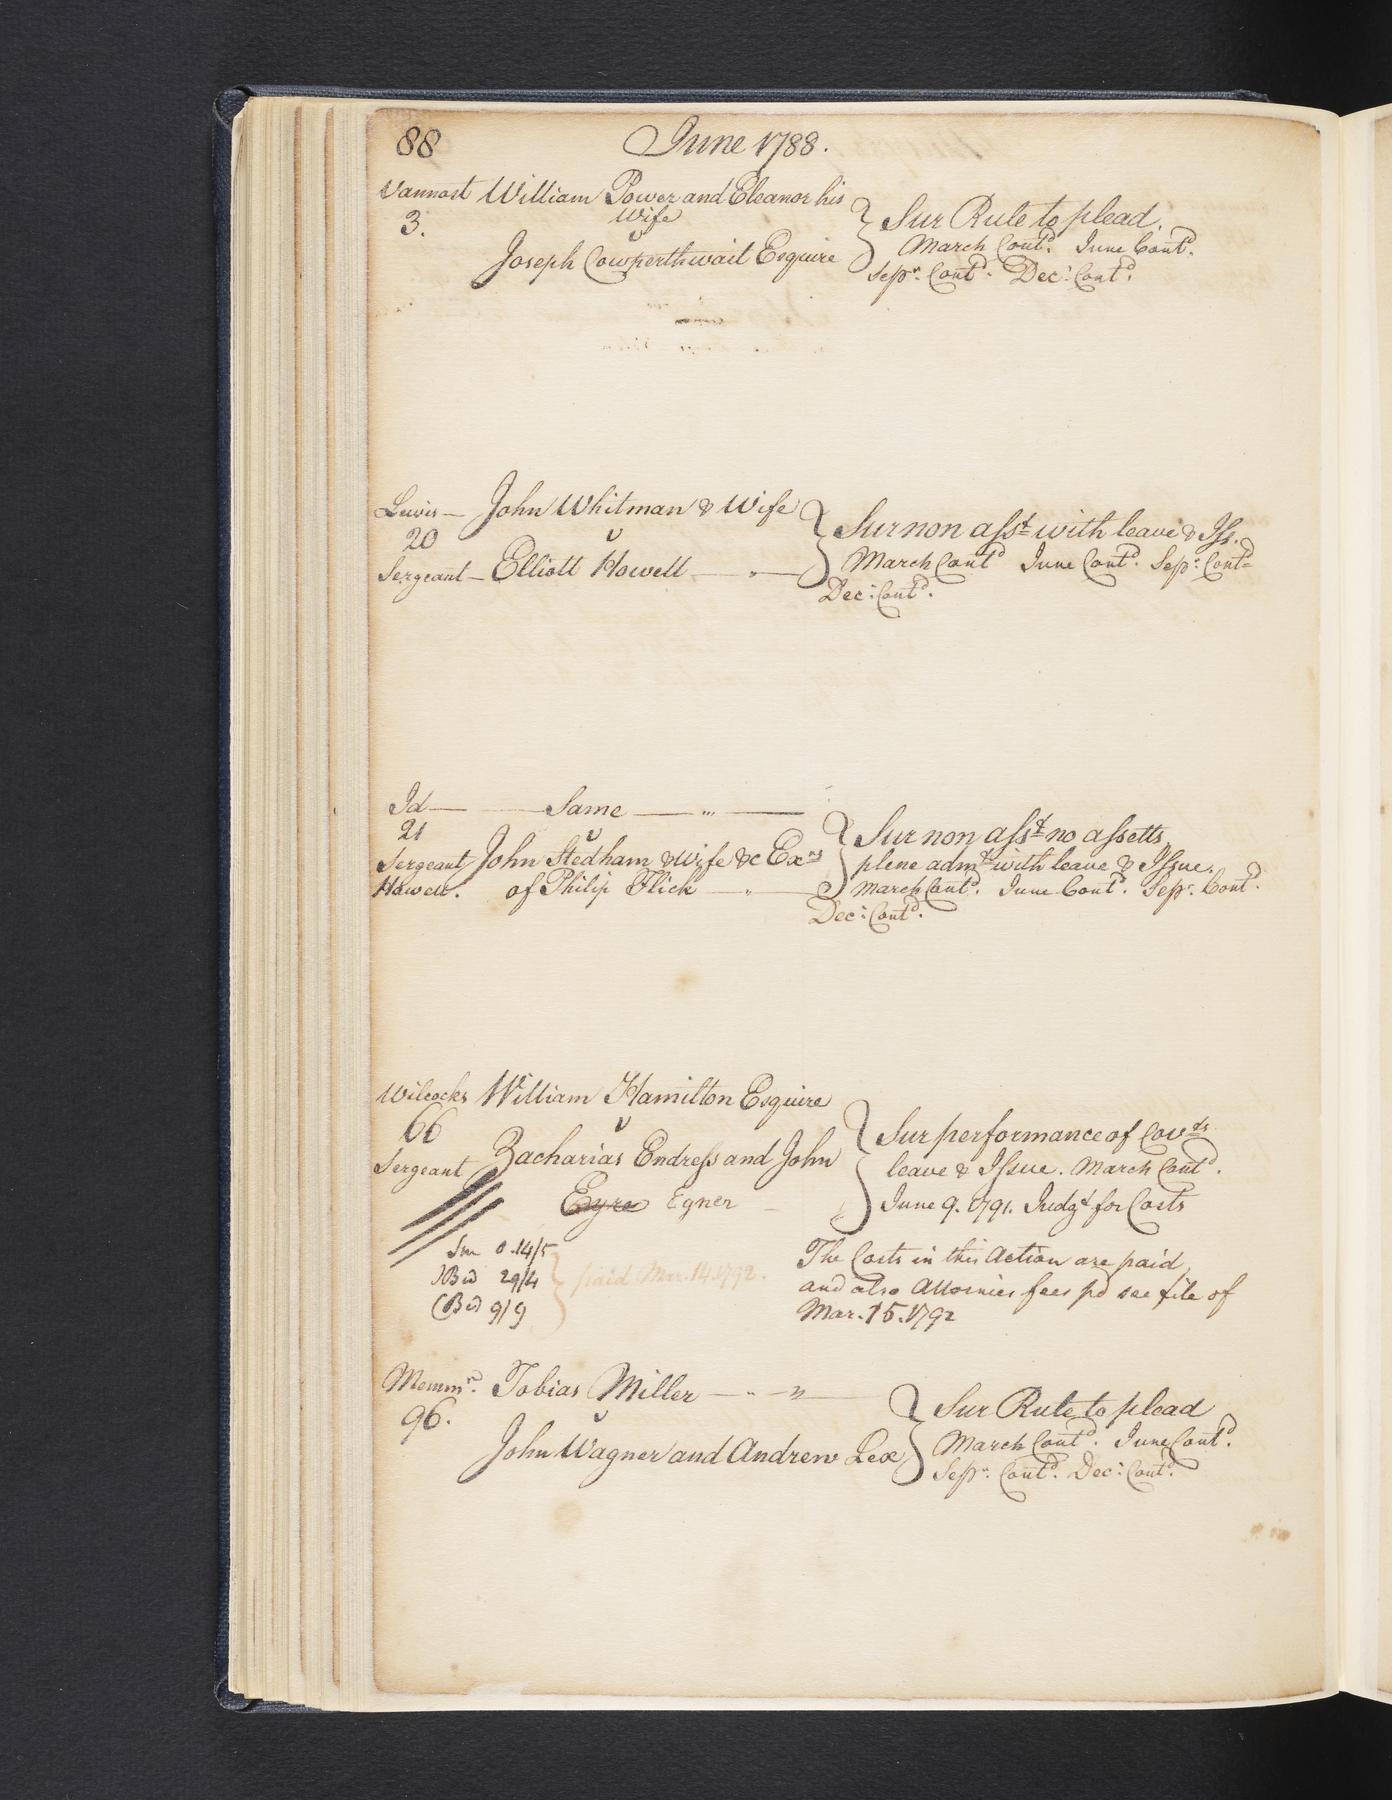 88 June 1788.
Vannost William Power and Eleanor his
3. Wife
v
Joseph Cowperthwait Esquire
Sur Rule to plead.
March Contd. June Contd.
Sepr. Contd. Dec: Contd.
Lewis — John Whitman & Wife
20 v
Sergeant — Elliott Howell — " —
Sur non asst with leave & Iss.
March Contd June Contd. Sepr: Contd
Dec: Contd.
Id — Same — " —
21 v
Sergeant John Stedham & Wife &c Exrs
Howell. of Philip Flick — " —
Sur non asst no assetts
plene admt with leave & Issue.
March Contd. June Contd. Sepr. Contd.
Dec: Contd.
Wilcocks William Hamilton Esquire
66 v
Sergeant Zacharias Endress and John
Eyre Egner
Sur performance of Covts
leave & Issue. March Contd.
June 9. 1791. Judgt for Costs
Sm 0.14/5
Bid 29/4 paid Mar. 14 1792.
Bid 9/9
The Costs in this Action are paid
and also Attornies fees pd see file of
Mar. 15. 1792
Memmrd. Tobias Miller — " —
96. v
John Wagner and Andrew Lex
Sur Rule to plead
March Contd. June Contd.
Sepr. Contd. Dec: Contd.